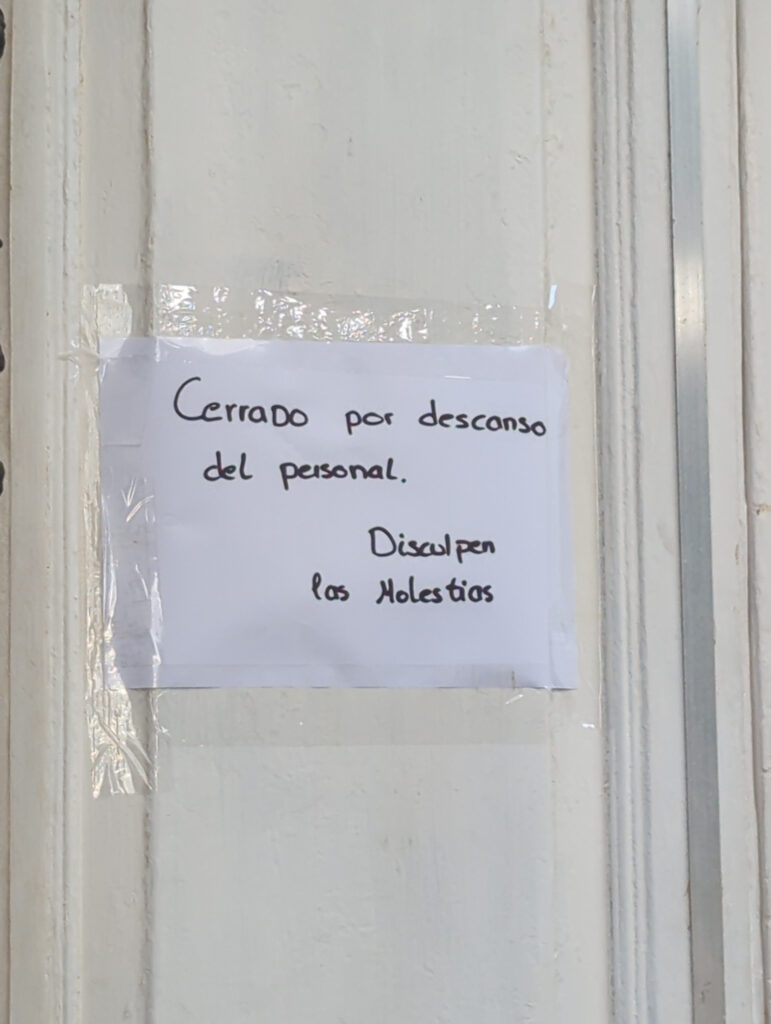 Cerrado por descanso
del personal.
Disculpen
las Molestias